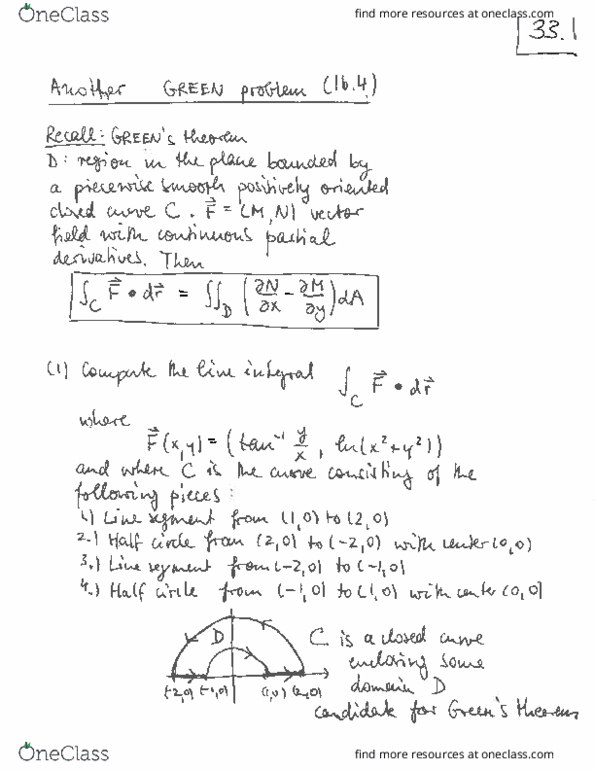 OneClass
find more resources at oneclass.com
33.1
Another GREEN problem (16.4)
Recall: GREEN's theorem
D: region in the plane bounded by
a piecewise smooth positively oriented
closed curve C. F⃗ = (M,N) vector
field with continuous partial
derivatives. Then
∫_C F⃗ • dr⃗ = ∬_D (∂N/∂x - ∂M/∂y) dA
(1) Compute the line integral ∫_C F⃗ • dr⃗
where
F⃗(x,y) = (tan⁻¹ y/x, ln(x²+y²))
and where C is the curve consisting of the
following pieces:
1.) Line segment from (1,0) to (2,0)
2.) Half circle from (2,0) to (-2,0) with center (0,0)
3.) Line segment from (-2,0) to (-1,0)
4.) Half circle from (-1,0) to (1,0) with center (0,0)
D
(-2,0) (-1,0) (1,0) (2,0)
C is a closed curve
enclosing some
domain D
candidate for Green's theorem
OneClass
find more resources at oneclass.com